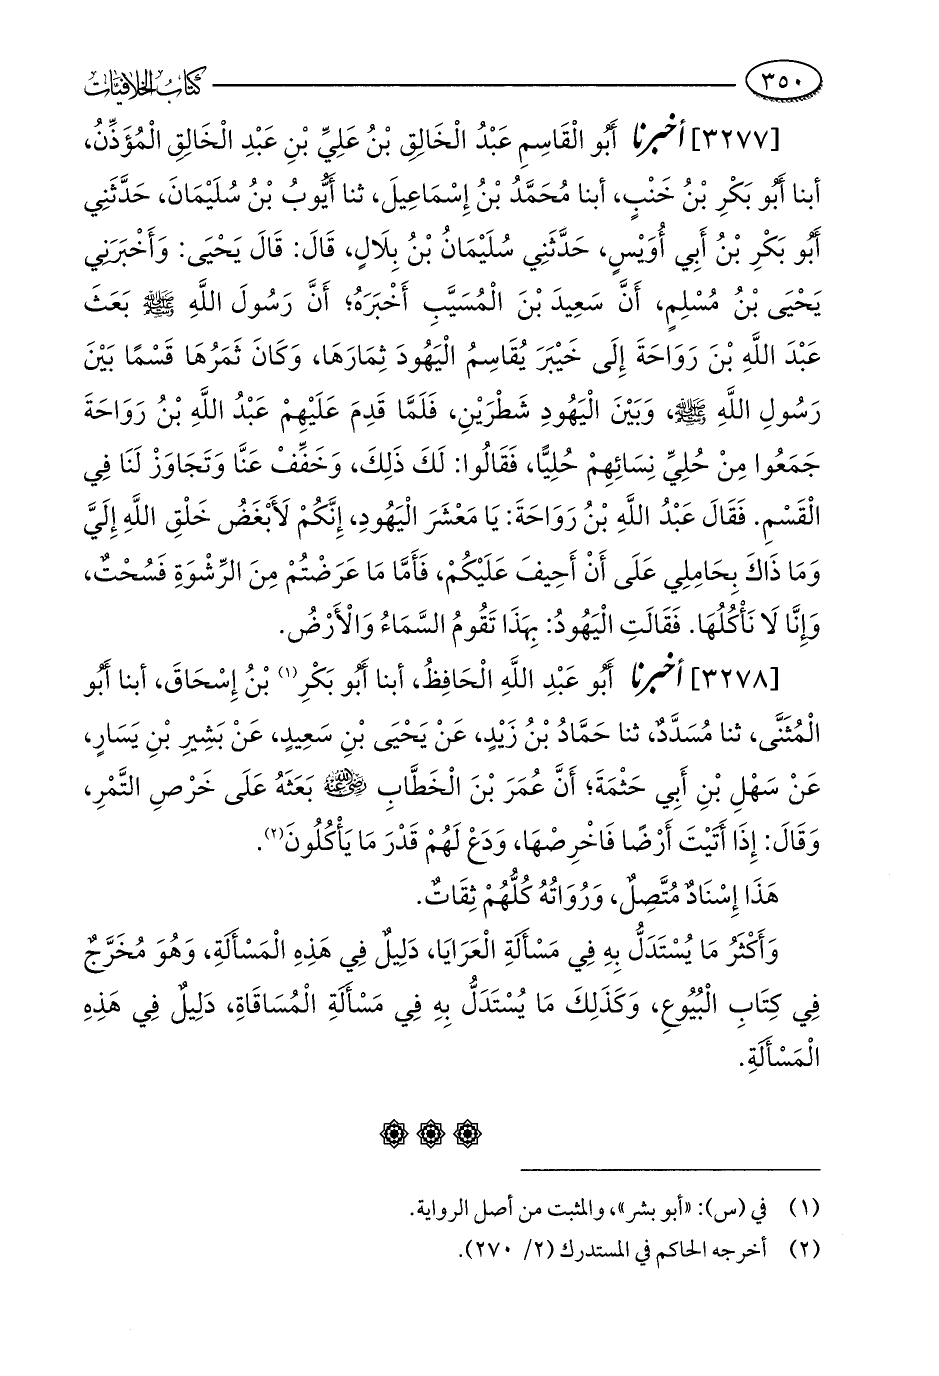 ٣٥٠ كتاب الخلافيات
[٣٢٧٧] أخبرنا أَبُو الْقَاسِمِ عَبْدُ الْخَالِقِ بْنُ عَلِيِّ بْنِ عَبْدِ الْخَالِقِ الْمُؤَذِّنُ،
أبنا أَبُو بَكْرِ بْنُ خَنْبٍ، أبنا مُحَمَّدُ بْنُ إِسْمَاعِيلَ، ثنا أَيُّوبُ بْنُ سُلَيْمَانَ، حَدَّثَنِي
أَبُو بَكْرِ بْنُ أَبِي أُوَيْسٍ، حَدَّثَنِي سُلَيْمَانُ بْنُ بِلَالٍ، قَالَ: قَالَ يَحْيَى: وَأَخْبَرَنِي
يَحْيَى بْنُ مُسْلِمٍ، أَنَّ سَعِيدَ بْنَ الْمُسَيَّبِ أَخْبَرَهُ؛ أَنَّ رَسُولَ اللَّهِ ﷺ بَعَثَ
عَبْدَ اللَّهِ بْنَ رَوَاحَةَ إِلَى خَيْبَرَ يُقَاسِمُ الْيَهُودَ ثِمَارَهَا، وَكَانَ ثَمَرُهَا قَسْمًا بَيْنَ
رَسُولِ اللَّهِ ﷺ، وَبَيْنَ الْيَهُودِ شَطْرَيْنِ، فَلَمَّا قَدِمَ عَلَيْهِمْ عَبْدُ اللَّهِ بْنُ رَوَاحَةَ
جَمَعُوا مِنْ حُلِيِّ نِسَائِهِمْ حُلِيًّا، فَقَالُوا: لَكَ ذَلِكَ، وَخَفِّفْ عَنَّا وَتَجَاوَزْ لَنَا فِي
الْقَسْمِ. فَقَالَ عَبْدُ اللَّهِ بْنُ رَوَاحَةَ: يَا مَعْشَرَ الْيَهُودِ، إِنَّكُمْ لَأَبْغَضُ خَلْقِ اللَّهِ إِلَيَّ
وَمَا ذَاكَ بِحَامِلِي عَلَى أَنْ أَحِيفَ عَلَيْكُمْ، فَأَمَّا مَا عَرَضْتُمْ مِنَ الرِّشْوَةِ فَسُحْتٌ،
وَإِنَّا لَا نَأْكُلُهَا. فَقَالَتِ الْيَهُودُ: بِهَذَا تَقُومُ السَّمَاءُ وَالْأَرْضُ.
[٣٢٧٨] أخبرنا أَبُو عَبْدِ اللَّهِ الْحَافِظُ، أبنا أَبُو بَكْرِ(١) بْنُ إِسْحَاقَ، أبنا أَبُو
الْمُثَنَّى، ثنا مُسَدَّدٌ، ثنا حَمَّادُ بْنُ زَيْدٍ، عَنْ يَحْيَى بْنِ سَعِيدٍ، عَنْ بَشِيرِ بْنِ يَسَارٍ،
عَنْ سَهْلِ بْنِ أَبِي حَثْمَةَ؛ أَنَّ عُمَرَ بْنَ الْخَطَّابِ رضي الله عنه بَعَثَهُ عَلَى خَرْصِ التَّمْرِ،
وَقَالَ: إِذَا أَتَيْتَ أَرْضًا فَاخْرِصْهَا، وَدَعْ لَهُمْ قَدْرَ مَا يَأْكُلُونَ(٢).
هَذَا إِسْنَادٌ مُتَّصِلٌ، وَرُوَاتُهُ كُلُّهُمْ ثِقَاتٌ.
وَأَكْثَرُ مَا يُسْتَدَلُّ بِهِ فِي مَسْأَلَةِ الْعَرَايَا، دَلِيلٌ فِي هَذِهِ الْمَسْأَلَةِ، وَهُوَ مُخَرَّجٌ
فِي كِتَابِ الْبُيُوعِ، وَكَذَلِكَ مَا يُسْتَدَلُّ بِهِ فِي مَسْأَلَةِ الْمُسَاقَاةِ، دَلِيلٌ فِي هَذِهِ
الْمَسْأَلَةِ.
(١) في (س): «أبو بشر»، والمثبت من أصل الرواية.
(٢) أخرجه الحاكم في المستدرك (٢/ ٢٧٠).